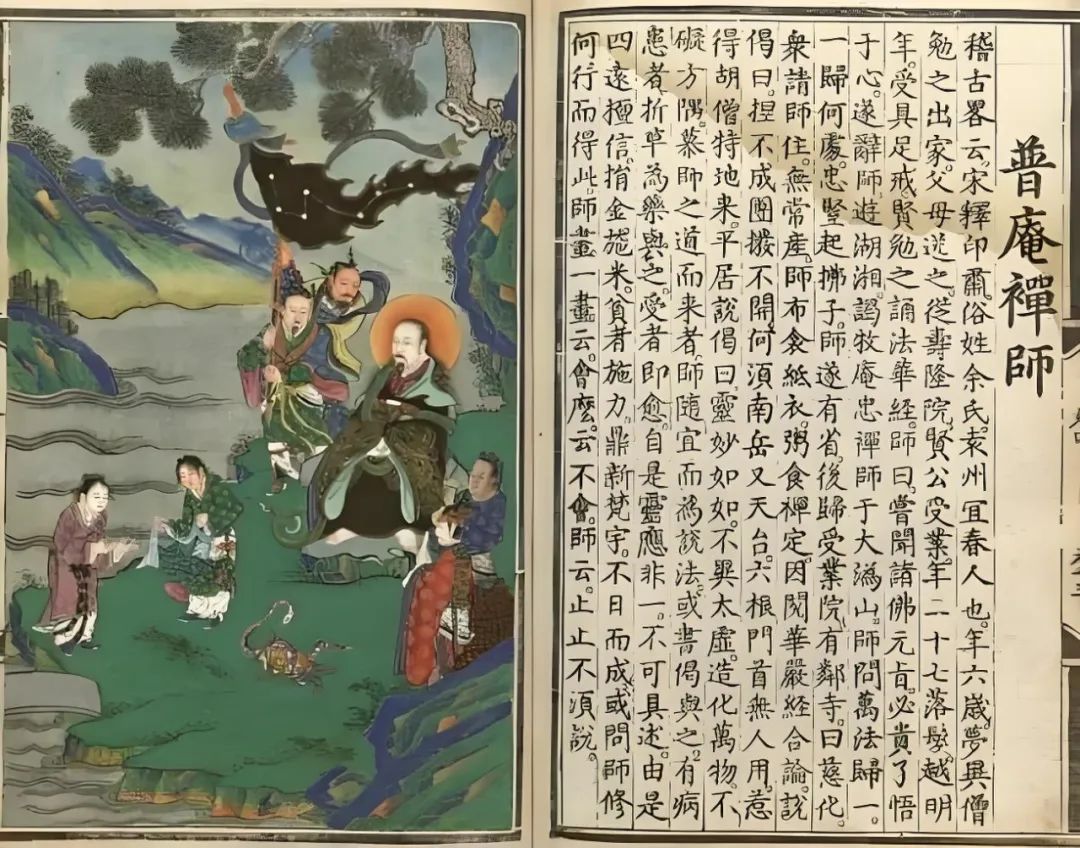 普庵禪師
稽古畧云。宋釋印肅。俗姓余氏。袁州宜春人也。年六歲。夢異僧
勉之出家。父母送之。從壽隆院。賢公受業。年二十七落髮。越明
年。受具足戒。賢勉之誦法華經。師曰。嘗聞諸佛元旨。必貴了悟
于心。遂辭師遊湖湘。謁牧庵忠禪師于大溈山。師問萬法歸一。
一歸何處。忠竪起拂子。師遂有省。後歸受業院。有鄰寺。曰慈化。
衆請師住。無常產。師布衾紙衣。粥食禪定。因閱華嚴經合論。說
偈曰。捏不成團撥不開。何須南岳又天台。六根門首無人用。惹
得胡僧特地来。平居說偈曰。靈妙如如。不異太虛。造化萬物。不
礙方隅。慕師之道而来者。師隨宜而為說法。或書偈與之。有病
患者。折草為藥與之。受者即愈。自是靈應非一。不可具述。由是
四遠擅信。捐金施米。貧者施力。鼎新梵宇。不日而成。或問師修
何行而得此。師畫一畫云。會麽。云不會。師云。止止不須說。